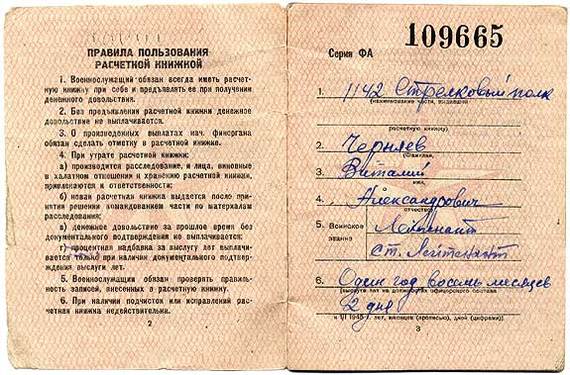 ПРАВИЛА ПОЛЬЗОВАНИЯ
РАСЧЕТНОЙ КНИЖКОЙ
1. Военнослужащий обязан всегда иметь расчет-
ную книжку при себе и предъявлять ее при получении
денежного довольствия.
2. Без предъявления расчетной книжки денежное
довольствие не выплачивается.
3. О произведенных выплатах нач. финоргана
обязан сделать отметку в расчетной книжке.
4. При утрате расчетной книжки:
а) производится расследование, и лица, виновные
в халатном отношении и хранении расчетной книжки,
привлекаются к ответственности;
б) новая расчетная книжка выдается после при-
нятия решения командованием части по материалам
расследования;
в) денежное довольствие за прошлое время без
документального подтверждения не выплачивается;
г) процентная надбавка за выслугу лет выплачи-
вается только при наличии документального подтверж-
дения выслуги лет.
5. Военнослужащий обязан проверять правиль-
ность записей, внесенных в расчетную книжку.
6. При наличии подчисток или исправлений рас-
четная книжка недействительна.
2
Серия ФА 109665
1. 1142 Стрелковый полк
(наименование части, выдавшей
расчетную книжку)
2. Черняев
(фамилия,
3. Виталий
имя,
4. Александрович
отчество)
5. Воинское звание Лейтенант
ст. Лейтенант
6. Один год восемь месяцев
(выслуга лет на должностях офицерского состава
2 дня
к VI 1945 г. лет, месяцев (прописью), дней (цифрами)
3